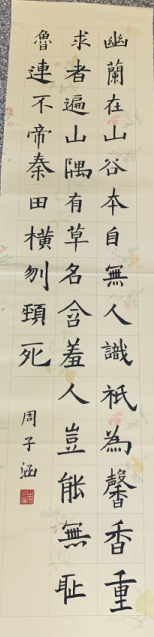 幽蘭在山谷本自無人識祇為馨香重
求者遍山隅有草名含羞人豈能無恥
魯連不帝秦田橫刎頸死
周子涵